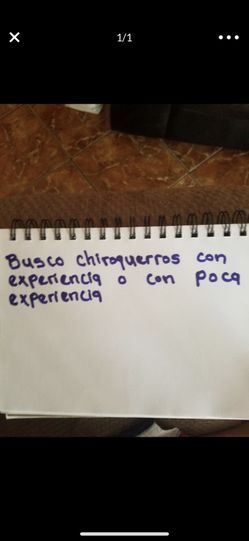 1/1
Busco chiroquerros con
experiencia o con poca
experiencia